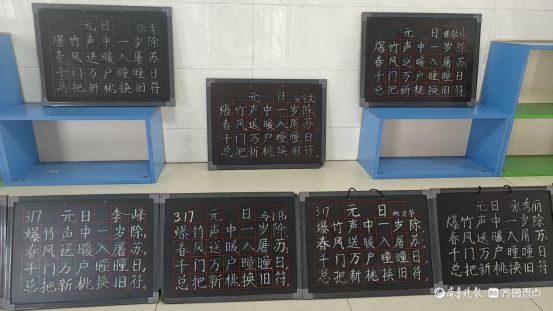 元日 徐涛
爆竹声中一岁除
春风送暖入屠苏
千门万户曈曈日
总把新桃换旧符
元日
爆竹声中一岁除
春风送暖入屠苏
千门万户曈曈日
总把新桃换旧符
元日
爆竹声中一岁除
春风送暖入屠苏
千门万户曈曈日
总把新桃换旧符
317 元日 李一峰
爆竹声中一岁除,
春风送暖入屠苏。
千门万户曈曈日,
总把新桃换旧符。
3.17 元日 马小伟
爆竹声中一岁除,
春风送暖入屠苏。
千门万户曈曈日,
总把新桃换旧符。
317 元日
爆竹声中一岁除,
春风送暖入屠苏。
千门万户曈曈日,
总把新桃换旧符。
元日 张秀丽
爆竹声中一岁除
春风送暖入屠苏
千门万户曈曈日
总把新桃换旧符
齐鲁晚报 齐鲁壹点